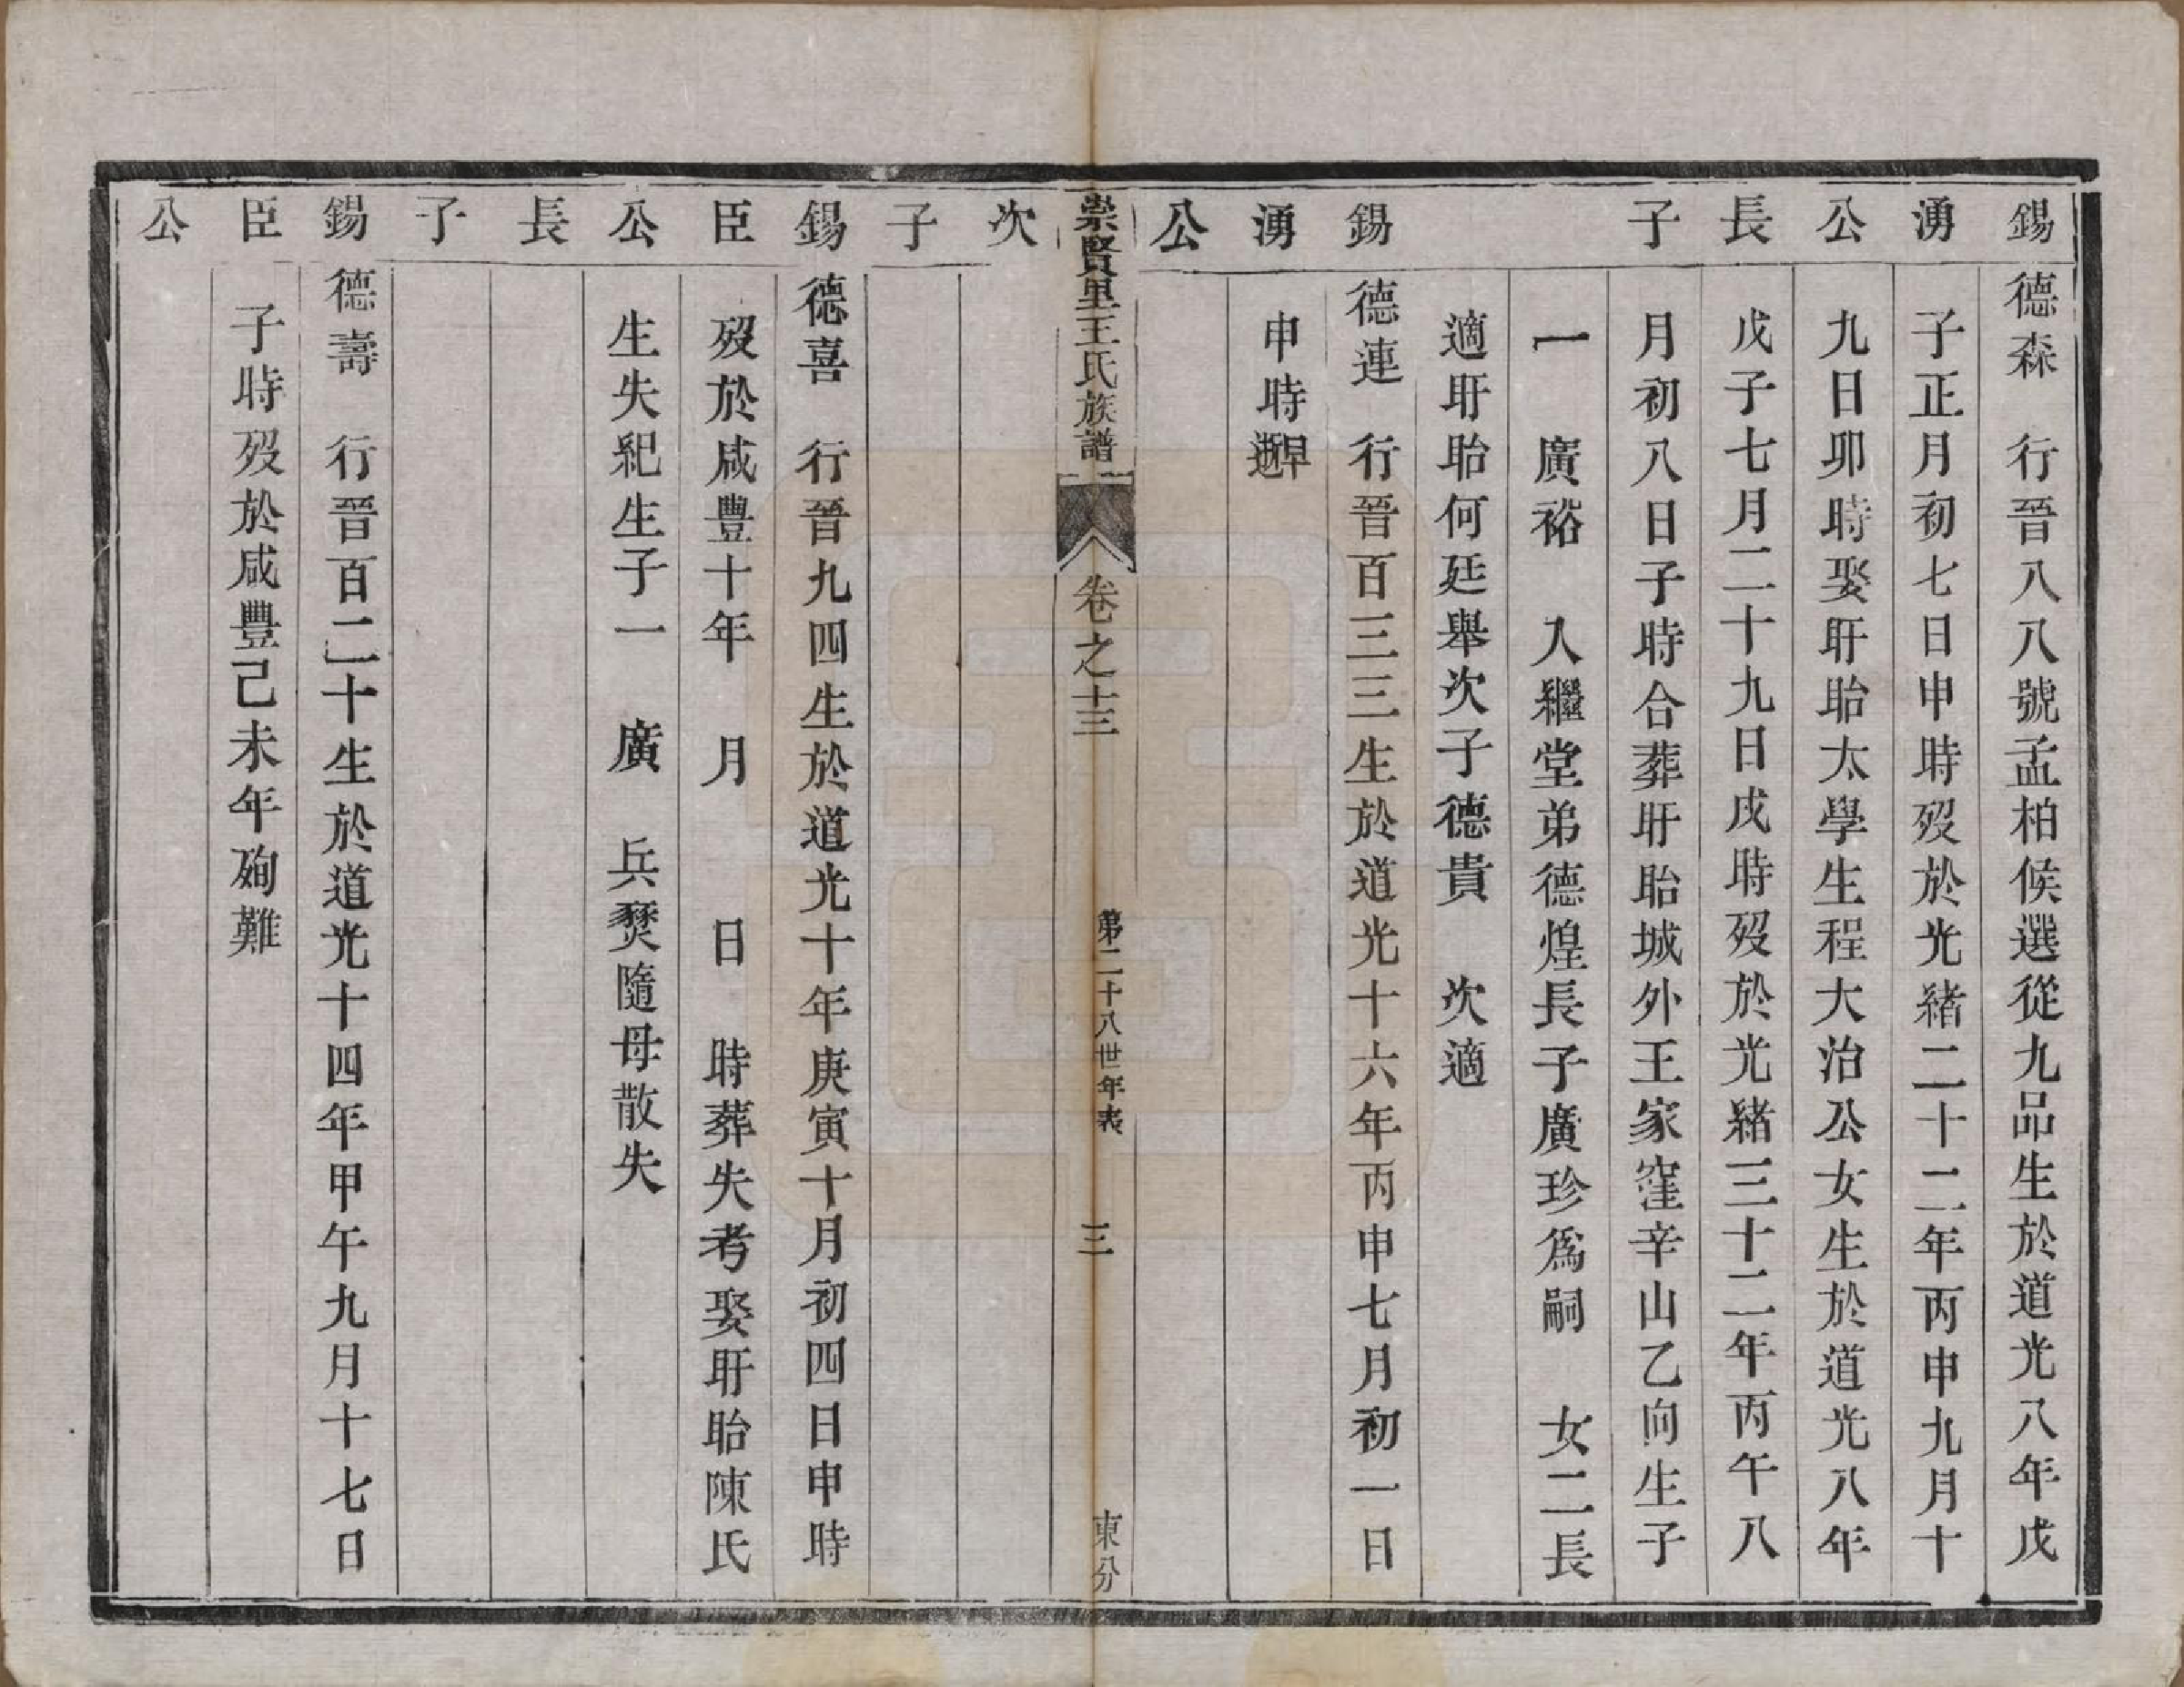 錫　德森　行晉八八號孟柏候選從九品生於道光八年戊
湧　子正月初七日申時歿於光緒二十二年丙申九月十
公　九日卯時娶盱眙太學生程大治公女生於道光八年
長　戊子七月二十九日戌時歿於光緒三十二年丙午八
子　月初八日子時合葬盱眙城外王家窪辛山乙向生子
一　廣裕　入繼堂弟德煌長子廣珍爲嗣　女二長
適盱眙何廷舉次子德貴　次適
錫　德連　行晉百三三生於道光十六年丙申七月初一日
湧　申時早逝
公
崇賢里王氏族譜　卷之十三　第二十八世年表　三　東分
次
子
錫　德喜　行晉九四生於道光十年庚寅十月初四日申時
臣　歿於咸豐十年　月　日　時葬失考娶盱眙陳氏
公　生失紀生子一　廣　兵燹隨母散失
長
子
錫　德壽　行晉百二十生於道光十四年甲午九月十七日
臣　子時歿於咸豐己未年殉難
公